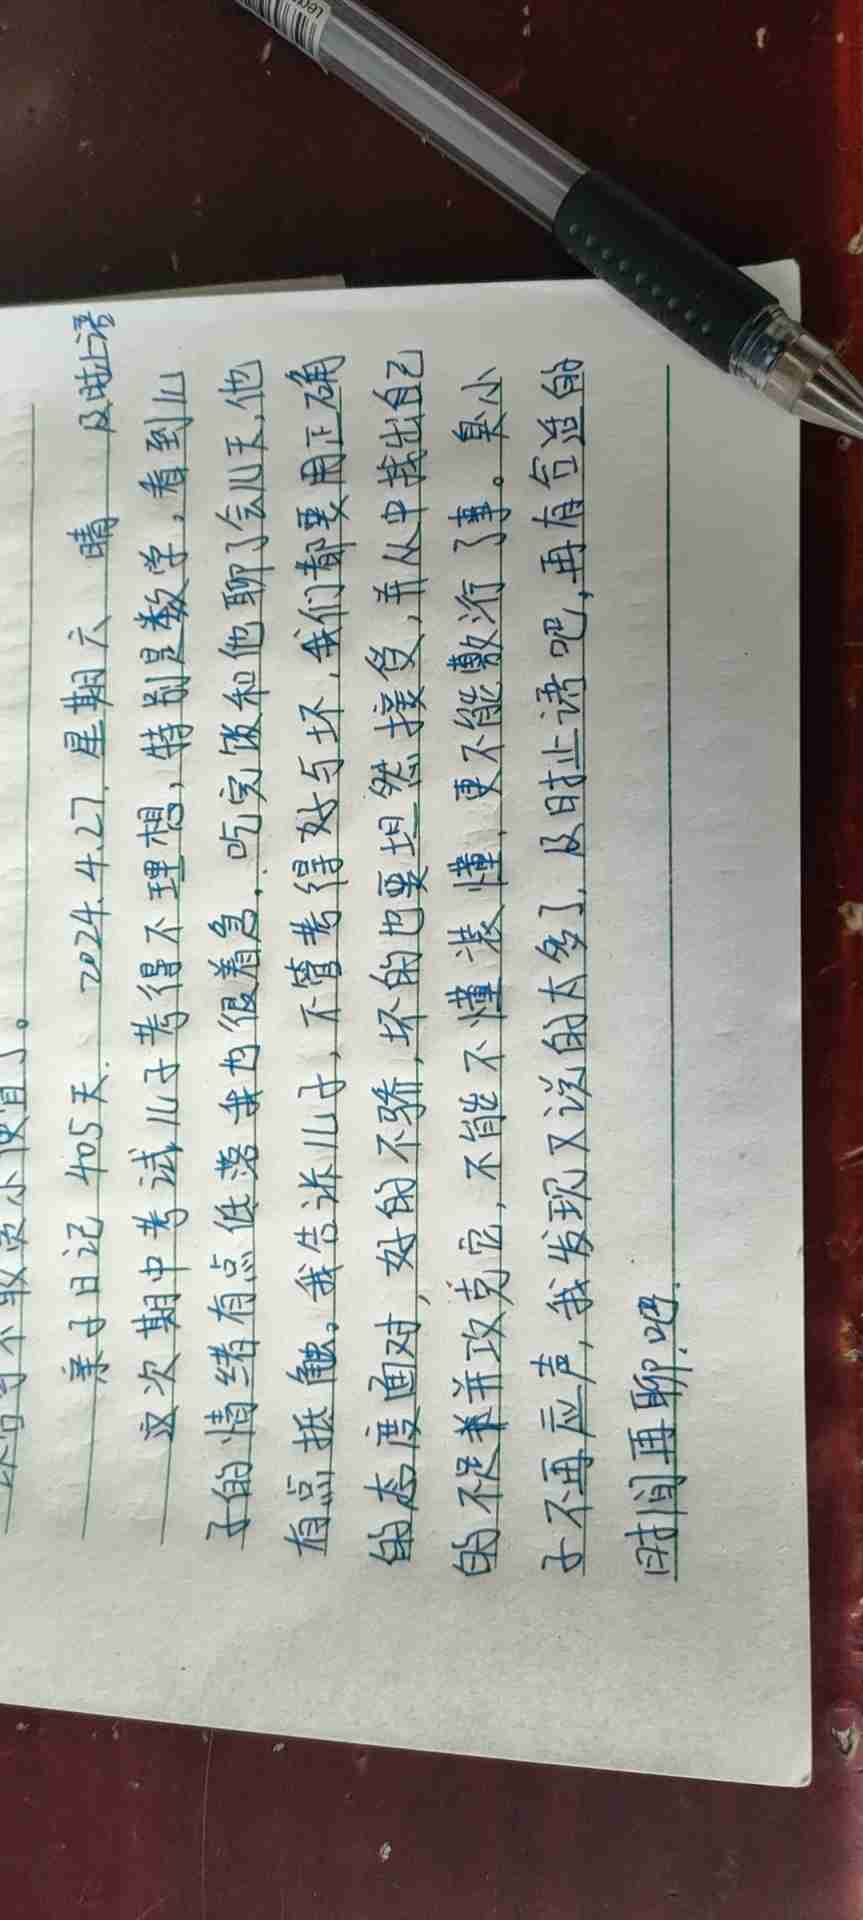 亲子日记 405天. 2024.4.27. 星期六 晴 及时止语
这次期中考试儿子考得不理想，特别是数学，看到儿
子的情绪有点低落我也很着急. 吃完饭和他聊了会儿天，他
有点抵触。我告诉儿子，不管考得好与坏，我们都要用正确
的态度面对，好的不骄，坏的也要坦然接受，并从中找出自己
的不足并攻克它，不能不懂装懂，更不能敷衍了事。臭小
子不再应声，我发现又说的太多了，及时止语吧，再有合适的
时间再聊吧.